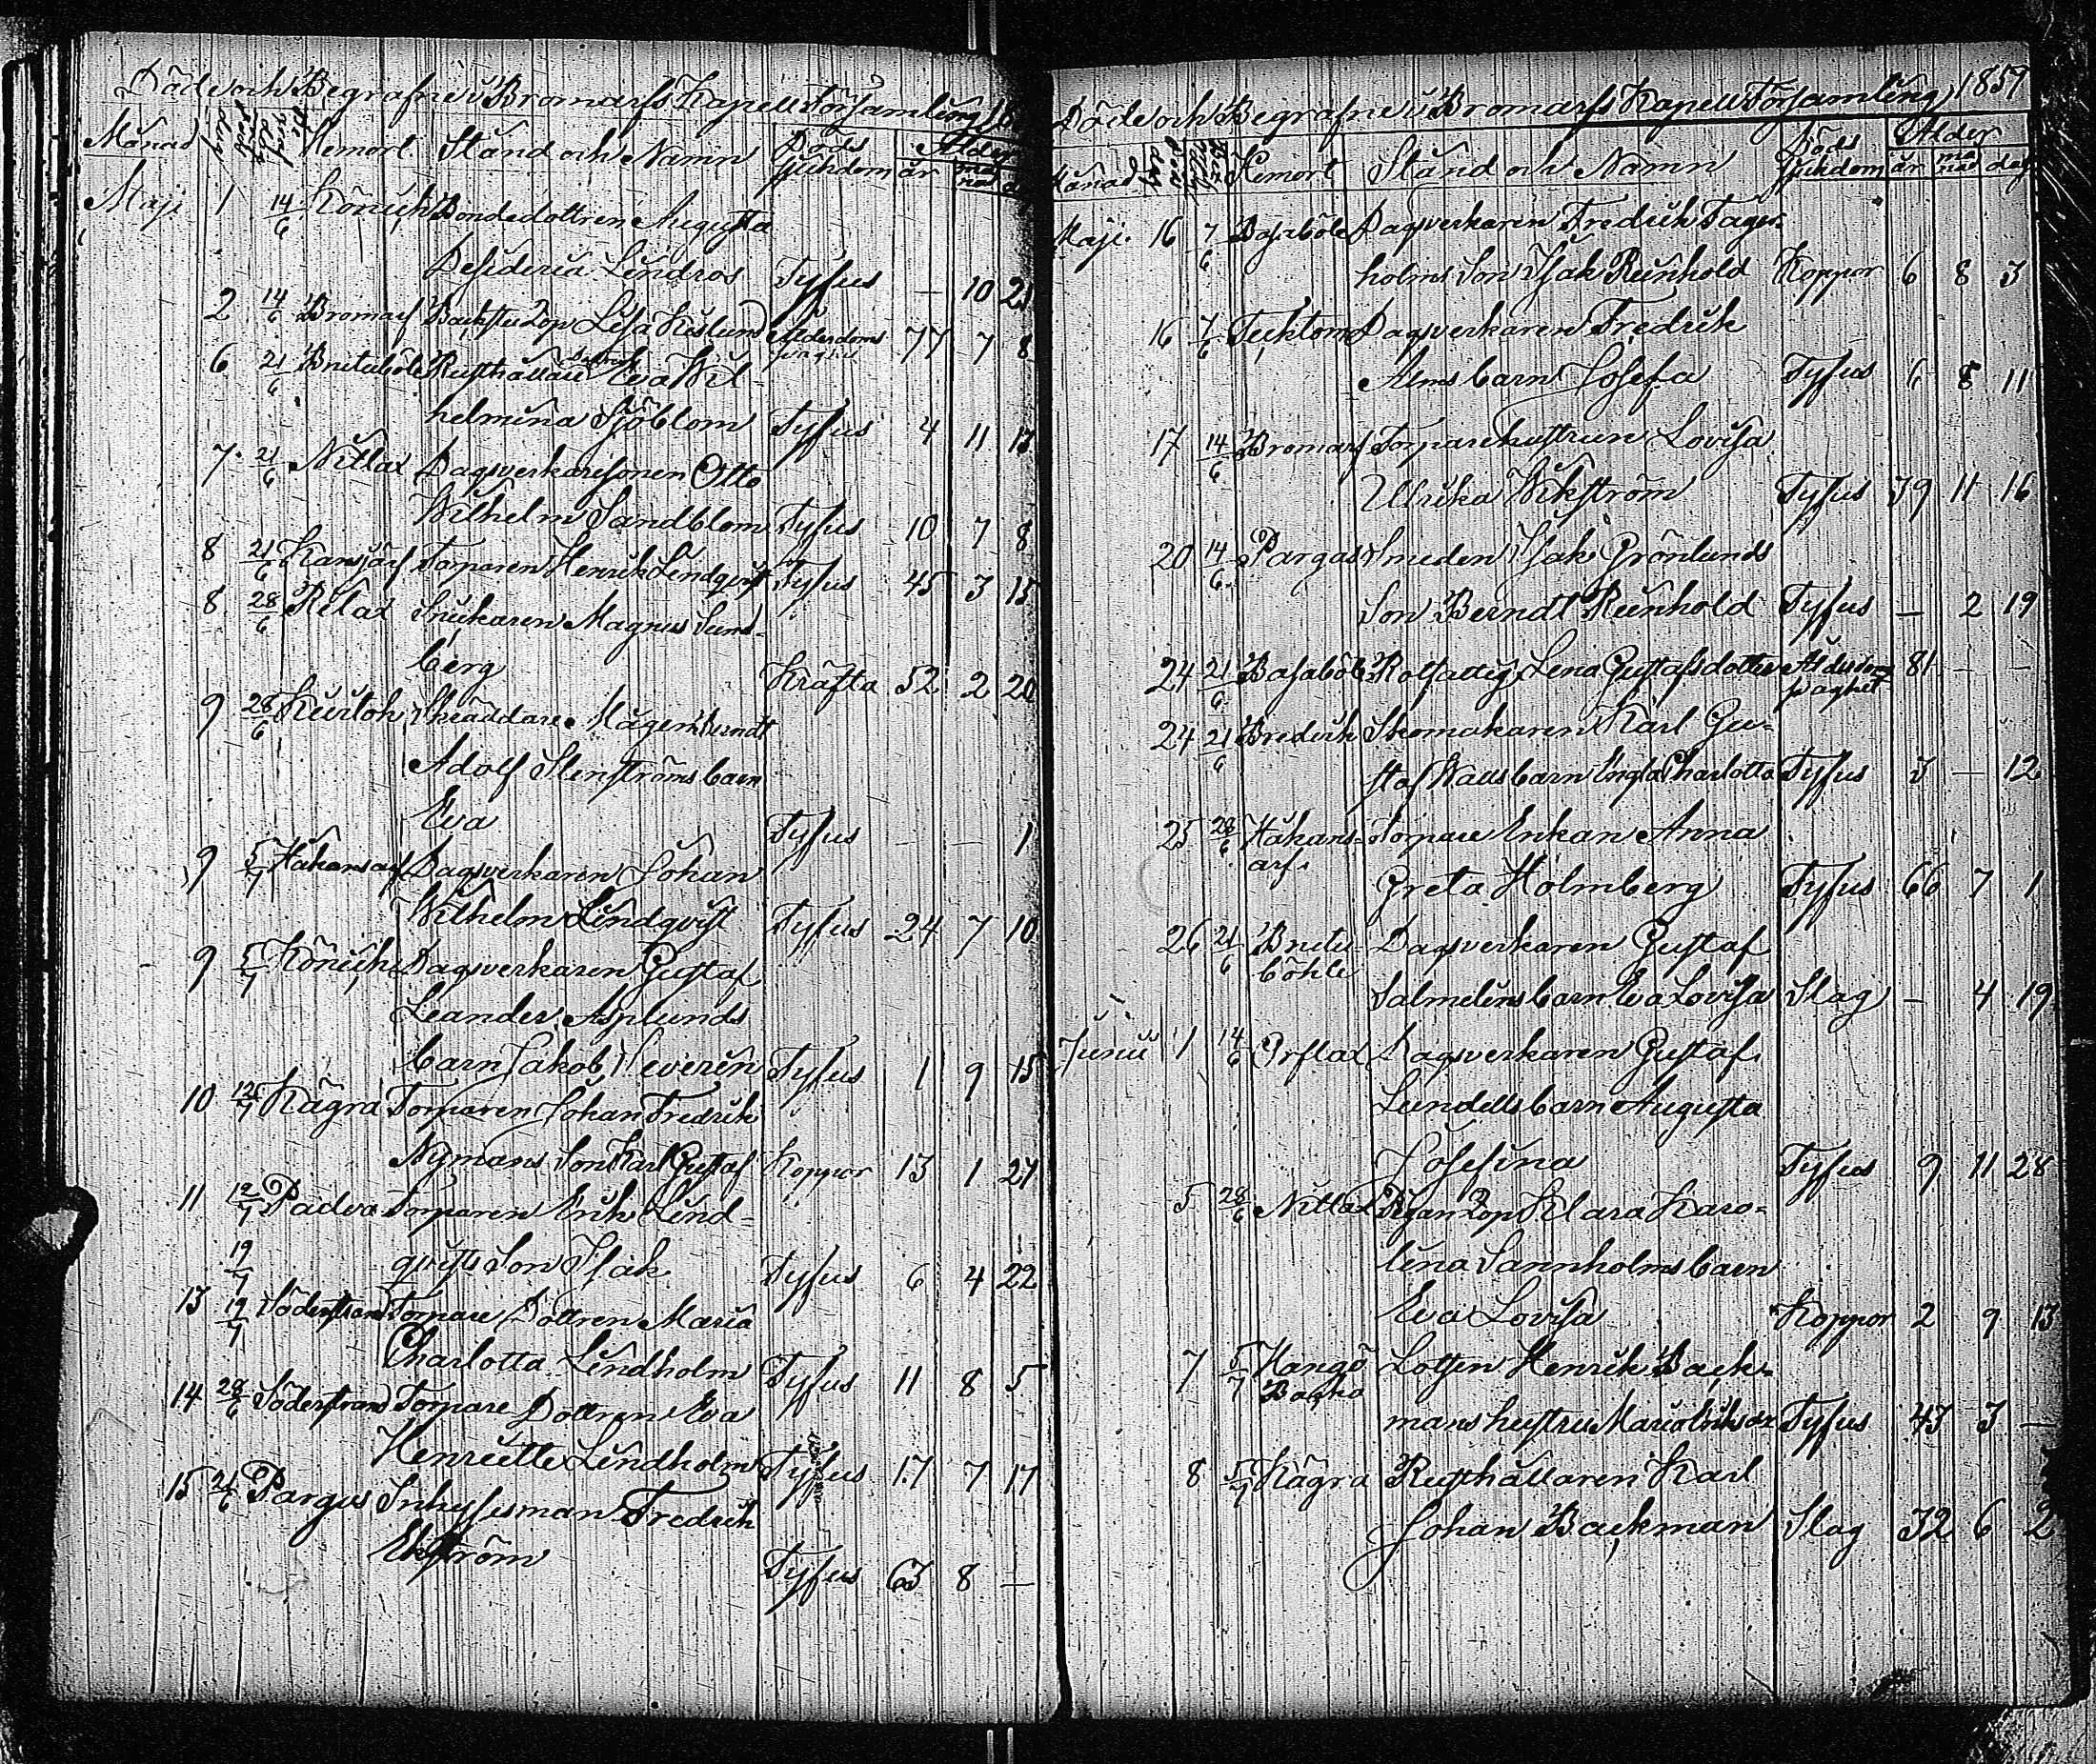 Döde och Begrafne i Bromarfs Kapell Församling
Månad dag Hemort. Stånd och Namn Döds sjukdom Ålder år månad
Maji 1 14/6 Bondedottren Augusta
Desideria Lindros Tyfus — 10 21
2 14/6 Bromarf Lisa Ålderdoms 77 7 8
6 21/6 Brutuböle Rusthållare Eva Wil-
helmina Sjöblom Tyfus 4 11 17
7. 21/6 Nitlax Dagsverkaresonen Otto
Wilhelm Sandblom Tyfus 10 7 8
8 21/6 Kansjärf Torparen Henrik Lindqvist Tyfus 45 3 15
8. 28/6 Rilax Snickaren Magnus Sund-
berg Kräfta 52 2 20
9 28/6 Skräddare Berndt
Adolf Stenströms barn
Eva Tyfus — — 1
9 5/7 Håkansarf Dagsverkaren Johan
Wilhelm Lindqvist Tyfus 24 7 10
9 5/7 Dagsverkaren Gustaf
Leander Asplunds
barn Jakob Severin Tyfus 1 9 15
10 12/7 Kågra Torparen Johan Fredrik
Nymans Son Karl Gustaf Koppor 13 1 27
11 12/7 Padva Torparen Erik Lind-
19/7 qvists Son Isak Tyfus 6 4 22
13 19/7 Söderstrand Torpare Dottren Maria
Charlotta Lindholm Tyfus 11 8 5
14 28/6 Söderstrand Torpare Dottren Eva
Henriette Lindholm Tyfus 17 7 17
15 21/6 Pargas Inhysesman Fredrik
Ekström Tyfus 63 8 —
Döde och Begrafne i Bromarfs Kapell Församling 1859
Månad dag Hemort Stånd och Namn Döds sjukdom Ålder år månad dag
Maji. 16 7/6 Basaböle Dagsverkaren Fredrik Fager-
holms Son Isak Reinhold Koppor 6 8 3
16 7/6 Täcktom Dagsverkaren Fredrik
Alms barn Josefa Tyfus 6 8 11
17 14/6 Bromarf Torparehustrun Lovisa
Ulrika Wikström Tyfus 39 11 16
20 14/6 Pargas Smeden Isak Grönlunds
Son Berndt Reinhold Tyfus — 2 19
24 21/6 Basaböle Rotfattig Lena Gustafsdotter Ålderdoms 81 — —
svaghet
24 21/6 Bredvik Skomakaren Karl Gu-
staf Walls barn Ingla Charlotta Tyfus 3 — 12
25 28/6 Håkans- Torpare Enkan Anna
arf.
Greta Holmberg Tyfus 66 7 1
26 21/6 Brutu- Dagsverkaren Gustaf
böhle
Salmelins barn Eva Lovisa Slag — 4 19
Junii 1 14/6 Orflax Dagsverkaren Gustaf
Lundells barn Augusta
Josefina Tyfus 9 11 28
5 28/6 Nitlax Pigan Klara Karo-
lina Sannholms barn
Eva Lovisa Koppor 2 9 13
7 5/7 Hangö Lotsen Henrik Back-
Backa
mans hustru Maria Tyfus 43 3 —
8 5/7 Kågra Rusthållaren Karl
Johan Backman Slag 32 6 2